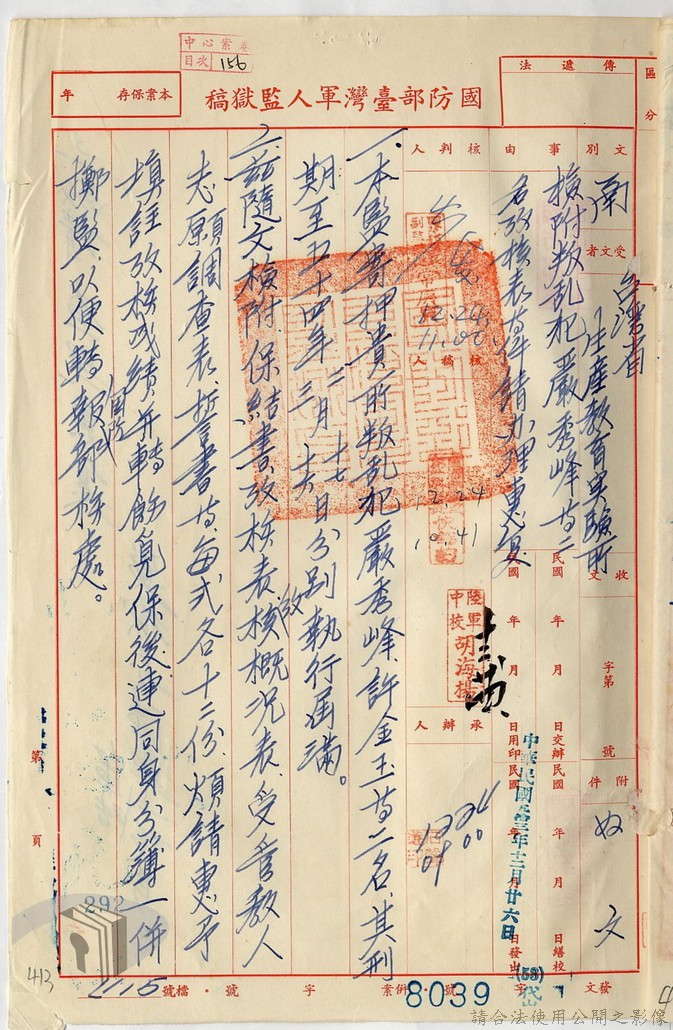 中心案卷
目次 156
國防部臺灣軍人監獄稿
本案保存 年
傳遞法
區分
文別 函
受文者 台灣省生產教育實驗所
事由 檢附叛乱犯嚴秀峰等二名攷核表等件請办理惠復
核判人
12.24.
11.00
核稿人
12.24
10.41
陸軍中校胡海揚
承辦人
12 24
09 00
收文 字第 號
附件 如文
民國 年 月 日交辦
民國 年 月 日繕校
民國 年 月 日用印
民國 年 月 日發出
中華民國五三年十二月廿六日
一、本監寄押貴所叛乱犯嚴秀峰、許金玉等二名,其刑
期至五十四年
二月十七
三月十六
日分別執行屆滿。
二、茲隨文檢附保結書、攷核表、攷核概況表、受查教人
志願調查表、誓書等、每式各十二份、煩請惠予
填註攷核成績并轉飭覓保後、連同身分簿一併
擲監、以便轉報國防部核處。
第 頁
292
413
2115
發文 (53) 字 8039 號
併案 字 號
檔號
請合法使用公開之影像